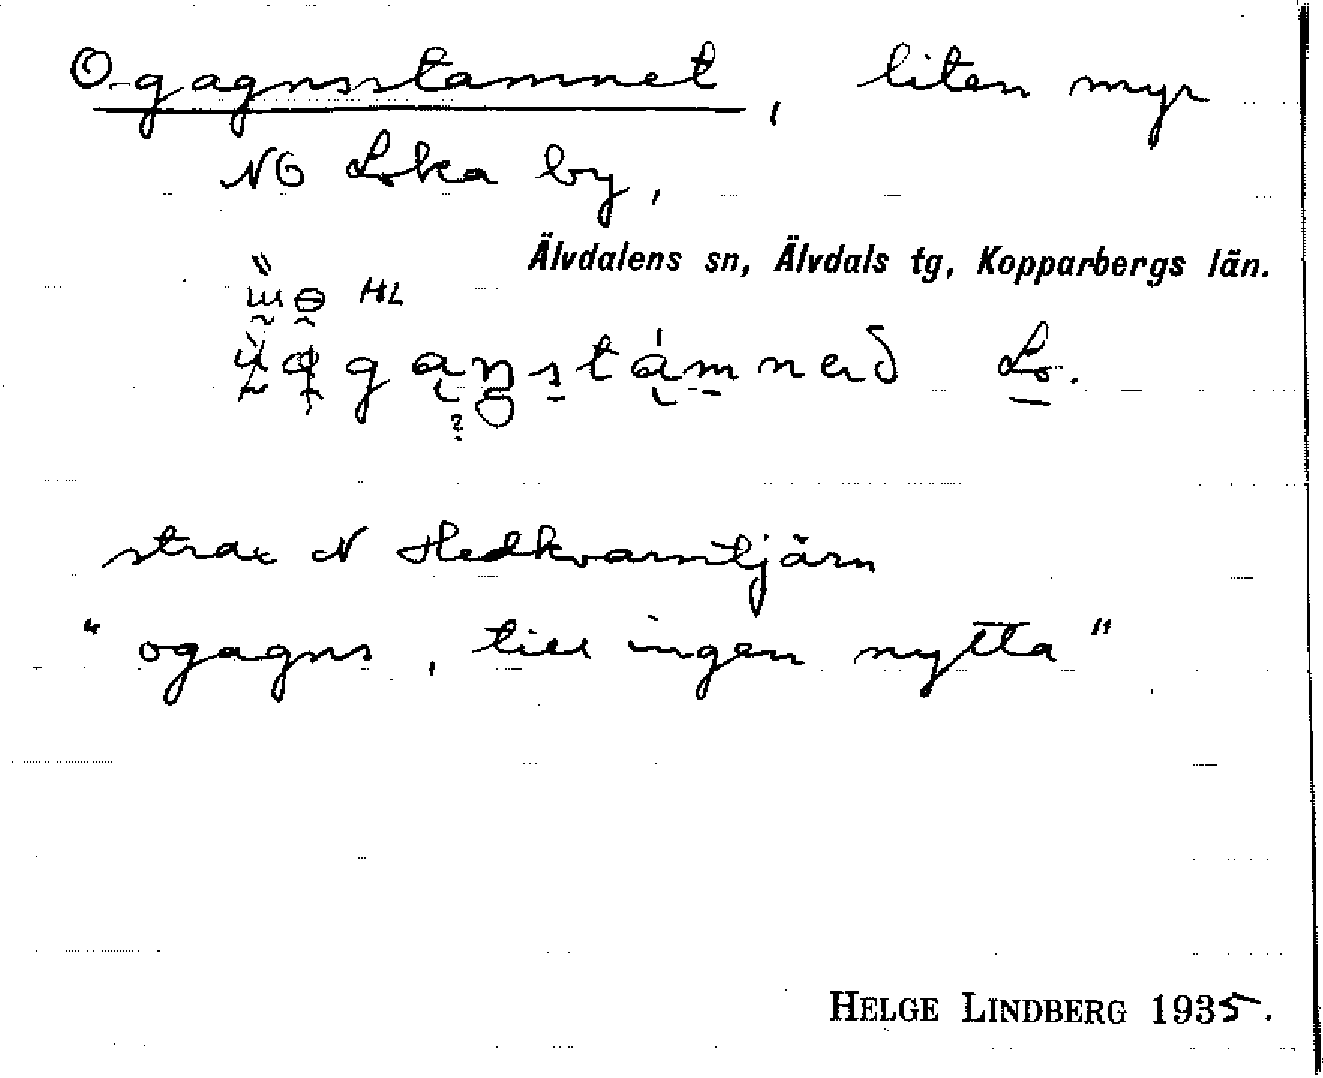 O-gagnsstamnet, liten myr
NO Loka by,
Älvdalens sn, Älvdals tg, Kopparbergs län.
HL
Lo.
strax N Hedkvarntjärn
"ogagns, till ingen nytta"
HELGE LINDBERG 1935.